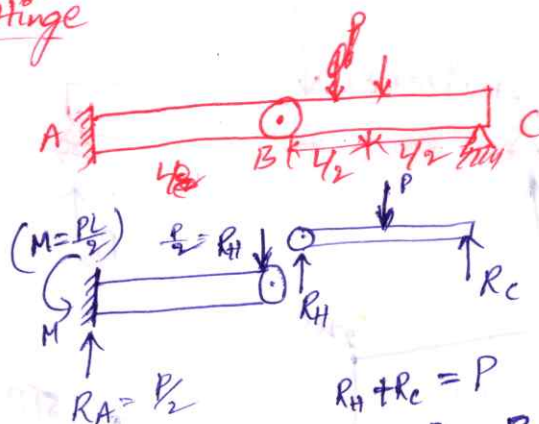 Hinge
P
A B L/2 L/2 C
(M = PL/2) P/2 = RH P
M RH RC
RA = P/2 RH + RC = P